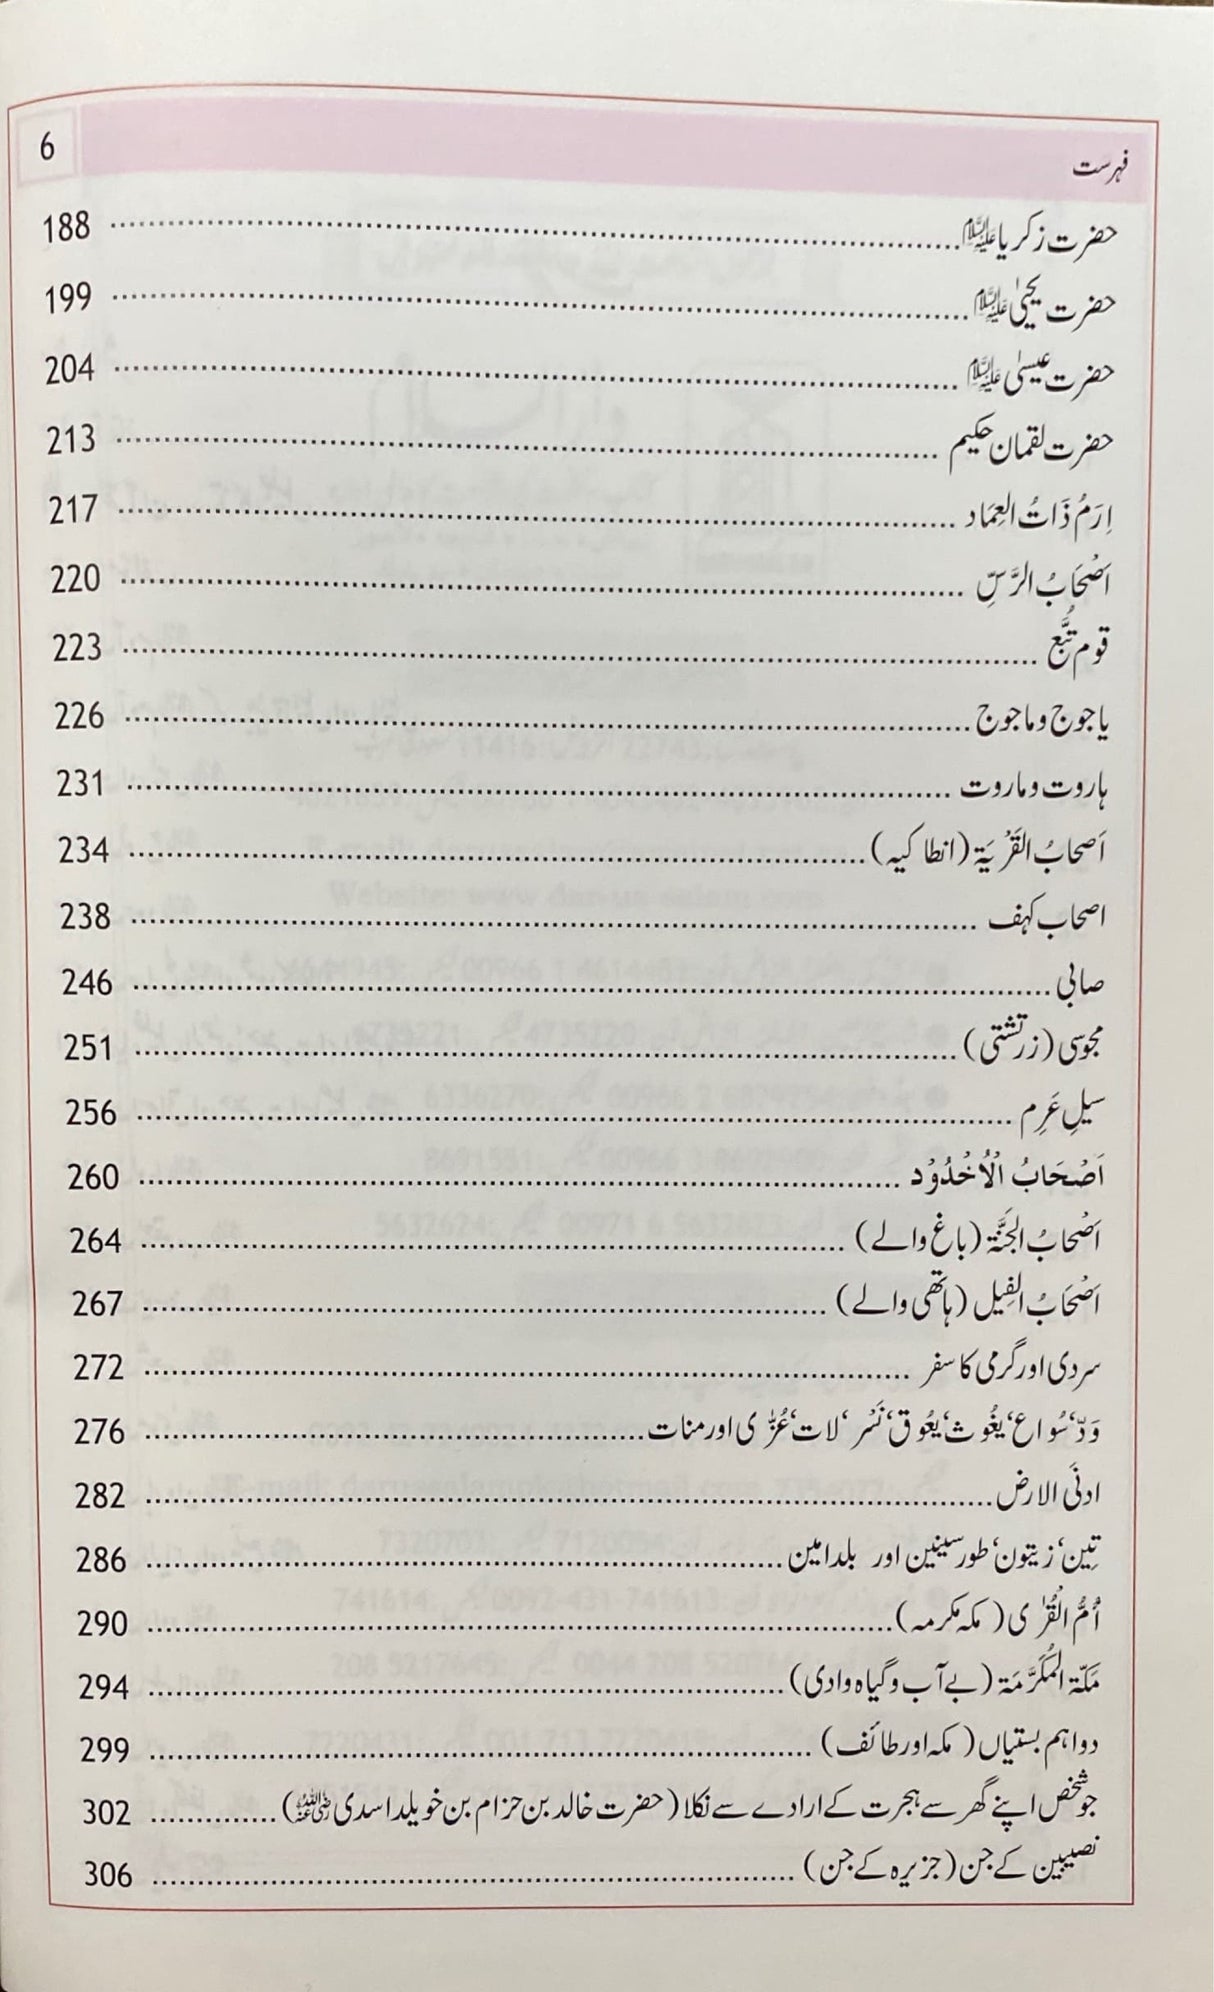 فہرست 6
حضرت زکریا علیہ السلام ........ 188
حضرت یحییٰ علیہ السلام ........ 199
حضرت عیسیٰ علیہ السلام ........ 204
حضرت لقمان حکیم ........ 213
اِرَمُ ذَاتُ العِمَاد ........ 217
اَصْحَابُ الرَّسِّ ........ 220
قوم تُبَّع ........ 223
یاجوج وماجوج ........ 226
ہاروت وماروت ........ 231
اَصحابُ القَرْیَۃ (انطاکیہ) ........ 234
اصحاب کہف ........ 238
صابی ........ 246
مجوسی (زرتشتی) ........ 251
سیلِ عَرِم ........ 256
اَصْحَابُ الْاُخْدُوْد ........ 260
اَصْحَابُ الجَنَّۃ (باغ والے) ........ 264
اَصْحَابُ الفِیل (ہاتھی والے) ........ 267
سردی اور گرمی کا سفر ........ 272
وَدّ، سُواع، یغُوث، یعُوق، نَسْر، لات، عُزّٰی اور منات ........ 276
ادنَی الارض ........ 282
تِین، زیتون، طور سینین اور بلد امین ........ 286
اُمُّ القُرٰی (مکہ مکرمہ) ........ 290
مَکّۃ المُکَرَّمَۃ (بے آب و گیاہ وادی) ........ 294
دو اہم بستیاں (مکہ اور طائف) ........ 299
جو شخص اپنے گھر سے ہجرت کے ارادے سے نکلا (حضرت خالد بن حزام بن خویلد اسدی رضی اللہ عنہ) ........ 302
نصیبین کے جن (جزیرہ کے جن) ........ 306